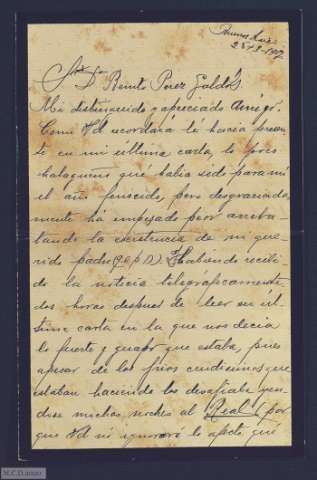 Buenos Aires
Sr. Dn
D. Benito Perez Galdós.
Mi distinguido y apreciado amigo:
Como Vd recordará le hacia presen
te en mi última carta, lo poco
halagüeño que habia sido para mi
el año fenecido, pero desgraciada
mente ha empezado peor arreba-
tando la existencia de mi que-
rido padre (q e p d). Habiendo recibi
do la noticia telegráficamente
dos horas despues de leer su úl-
tima carta en la que nos decia
lo fuerte y guapo que estaba, pues
apesar de los frios crudisimos que
estaban haciendo los desafiaba yen-
dose muchas noches al Real (por
que Vd no ignorará lo afecto que
M.C.D.